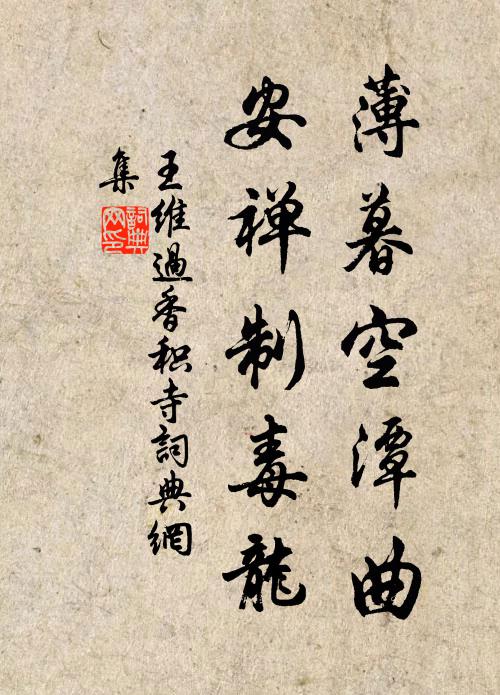 薄暮空潭曲
安禅制毒龍
王維過香积寺詞典網
集
詞典
网印